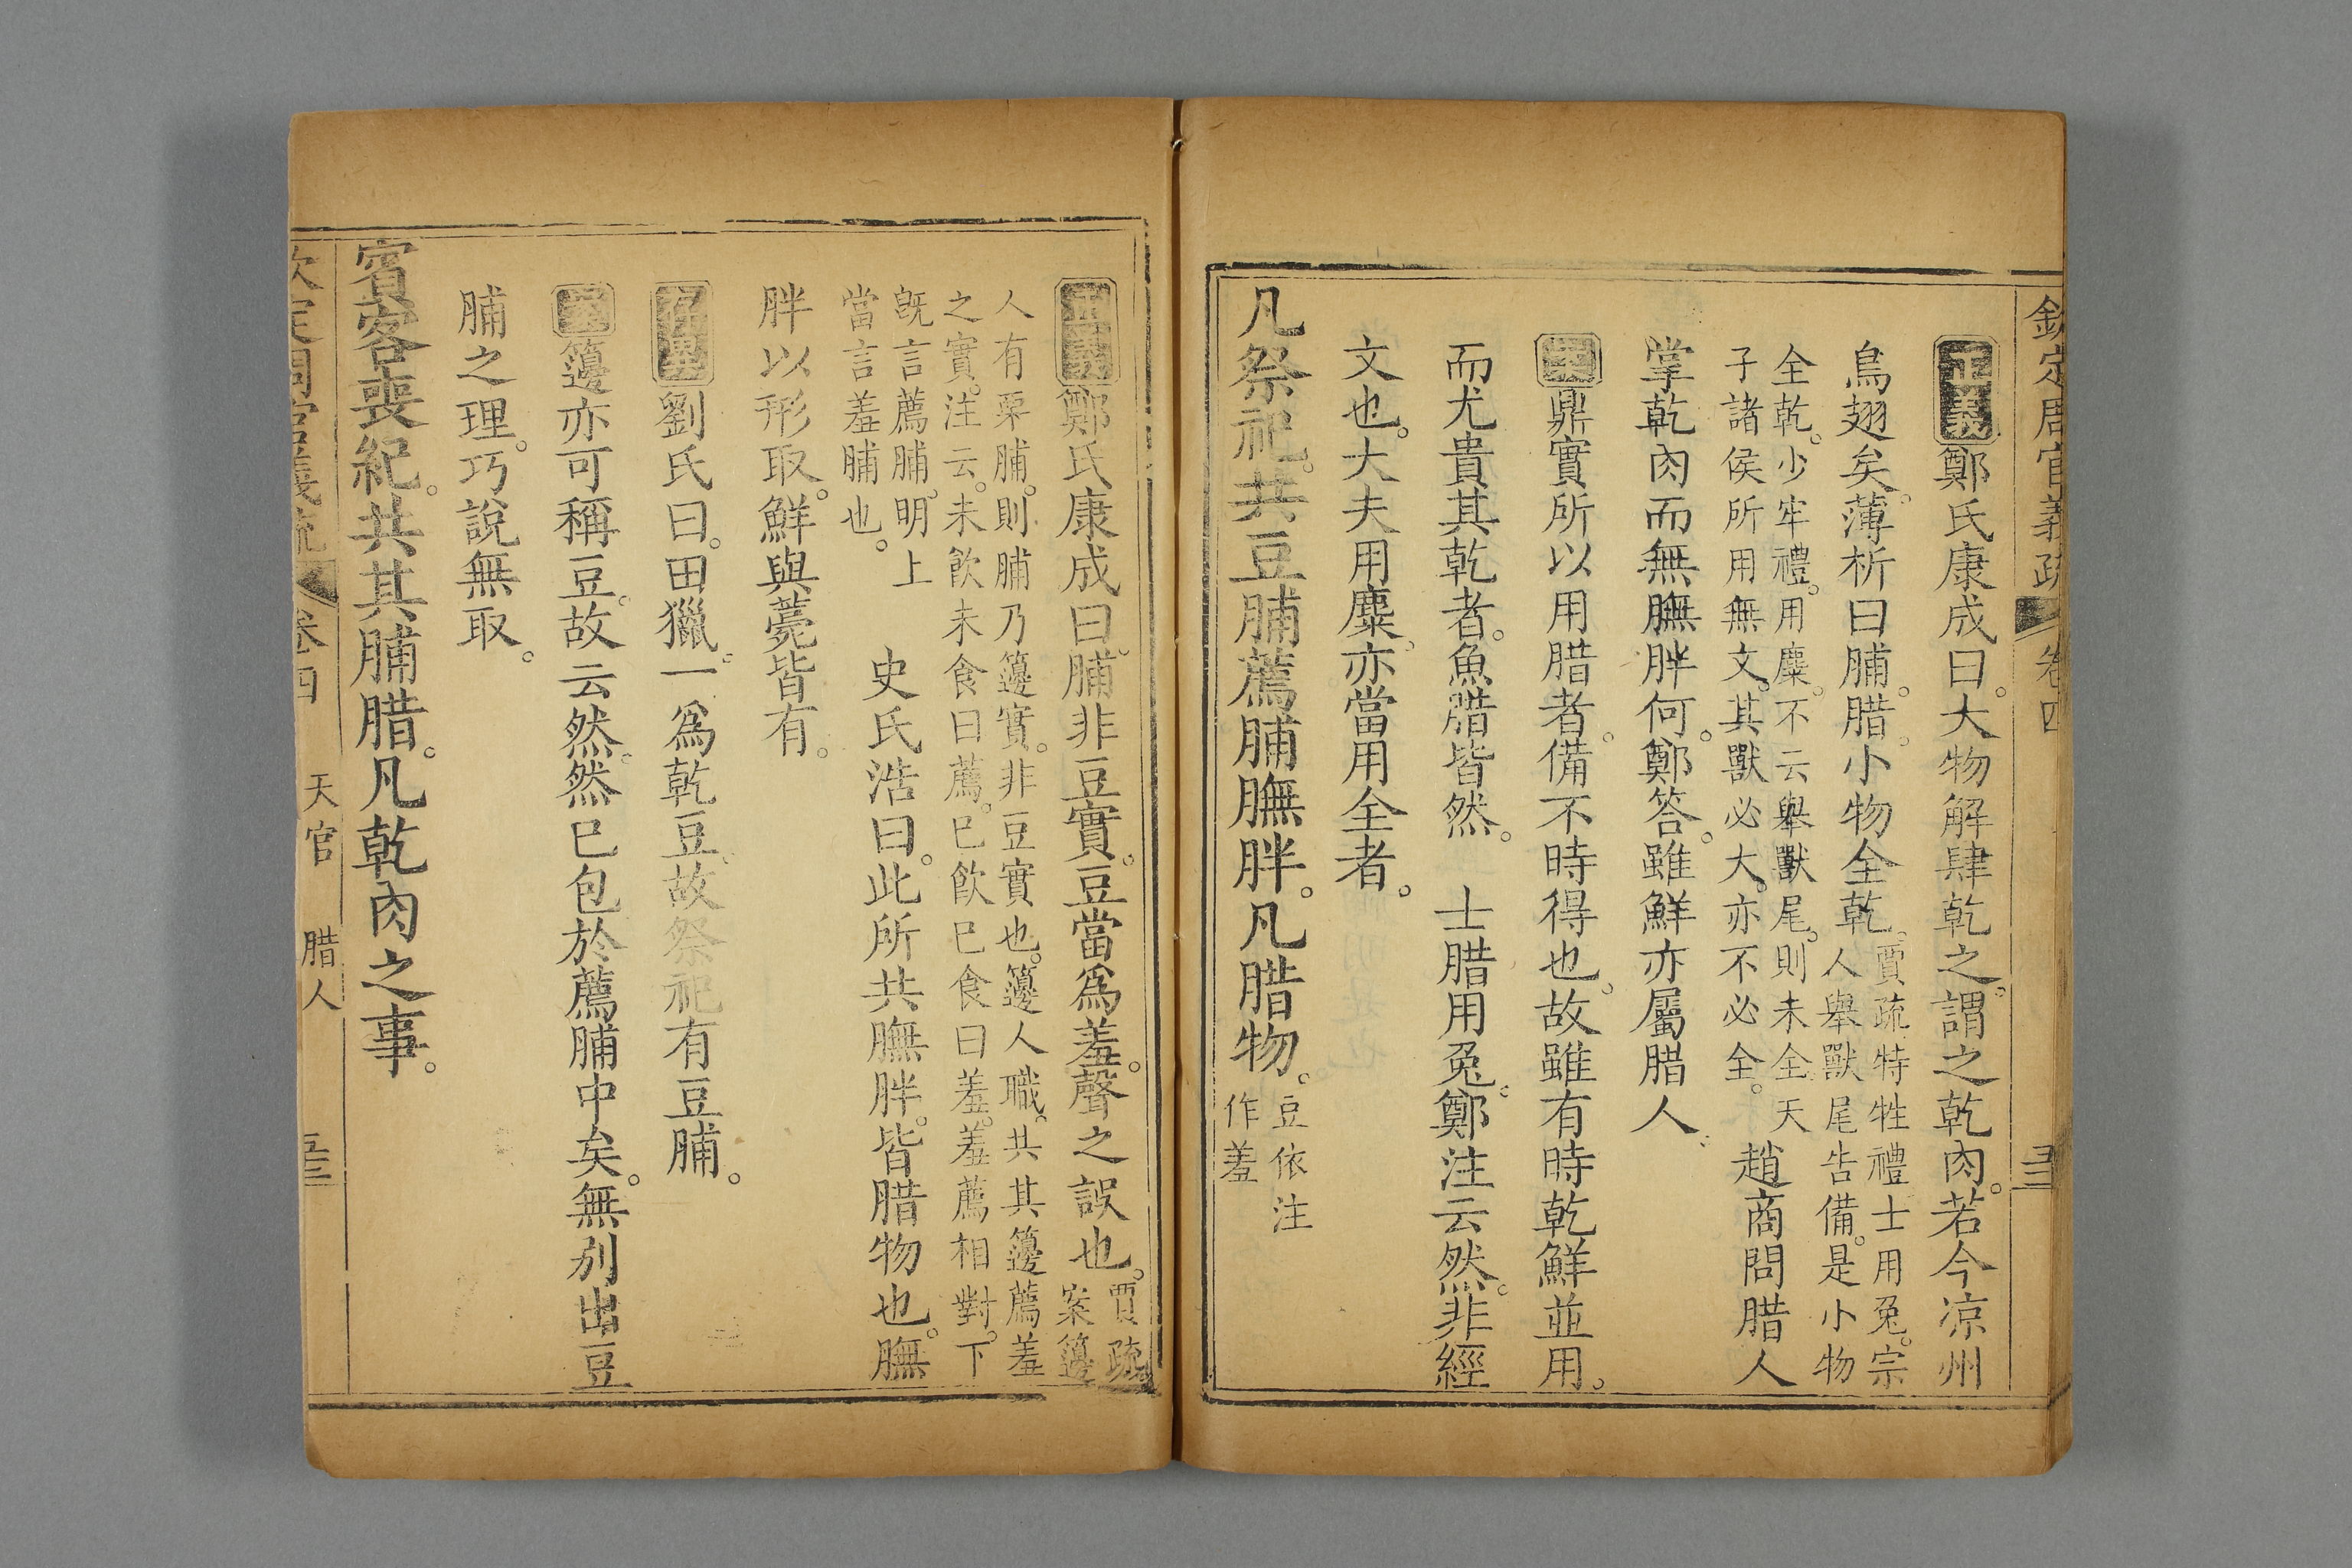 欽定周官義疏 卷四 五三
正義鄭氏康成曰。大物解肆乾之。謂之乾肉。若今凉州
烏翅矣。薄析曰脯。腊。小物全乾。賈疏特牲禮士用兔。宗
人舉獸尾告備。是小物
全乾。少牢禮。用麋。不云舉獸尾。則未全天
子諸侯所用無文。其獸必大。亦不必全。趙商問腊人
掌乾肉而無膴胖何。鄭答。雖鮮亦屬腊人。
案鼎實所以用腊者。備不時得也。故雖有時乾鮮並用。
而尤貴其乾者。魚腊皆然。 士腊用兔。鄭注云然。非經
文也。大夫用麋。亦當用全者。
凡祭祀。共豆脯薦脯膴胖。凡腊物。豆依注
作羞
正義鄭氏康成曰。脯非豆實。豆當爲羞。聲之誤也。賈疏
案籩
人有栗脯。則脯乃籩實。非豆實也。籩人職。共其籩薦羞
之實。注云。未飮未食曰薦。已飮已食曰羞。羞薦相對。下
旣言薦脯。明上
當言羞脯也。 史氏浩曰。此所共膴胖。皆腊物也。膴
胖以形取。鮮與薧皆有。
存異劉氏曰。田獵。一爲乾豆。故祭祀有豆脯。
案籩亦可稱豆。故云然。然已包於薦脯中矣。無別出豆
脯之理。巧說無取。
賓客喪紀。共其脯腊。凡乾肉之事。
欽定周官義疏 卷四 天官 腊人 五三